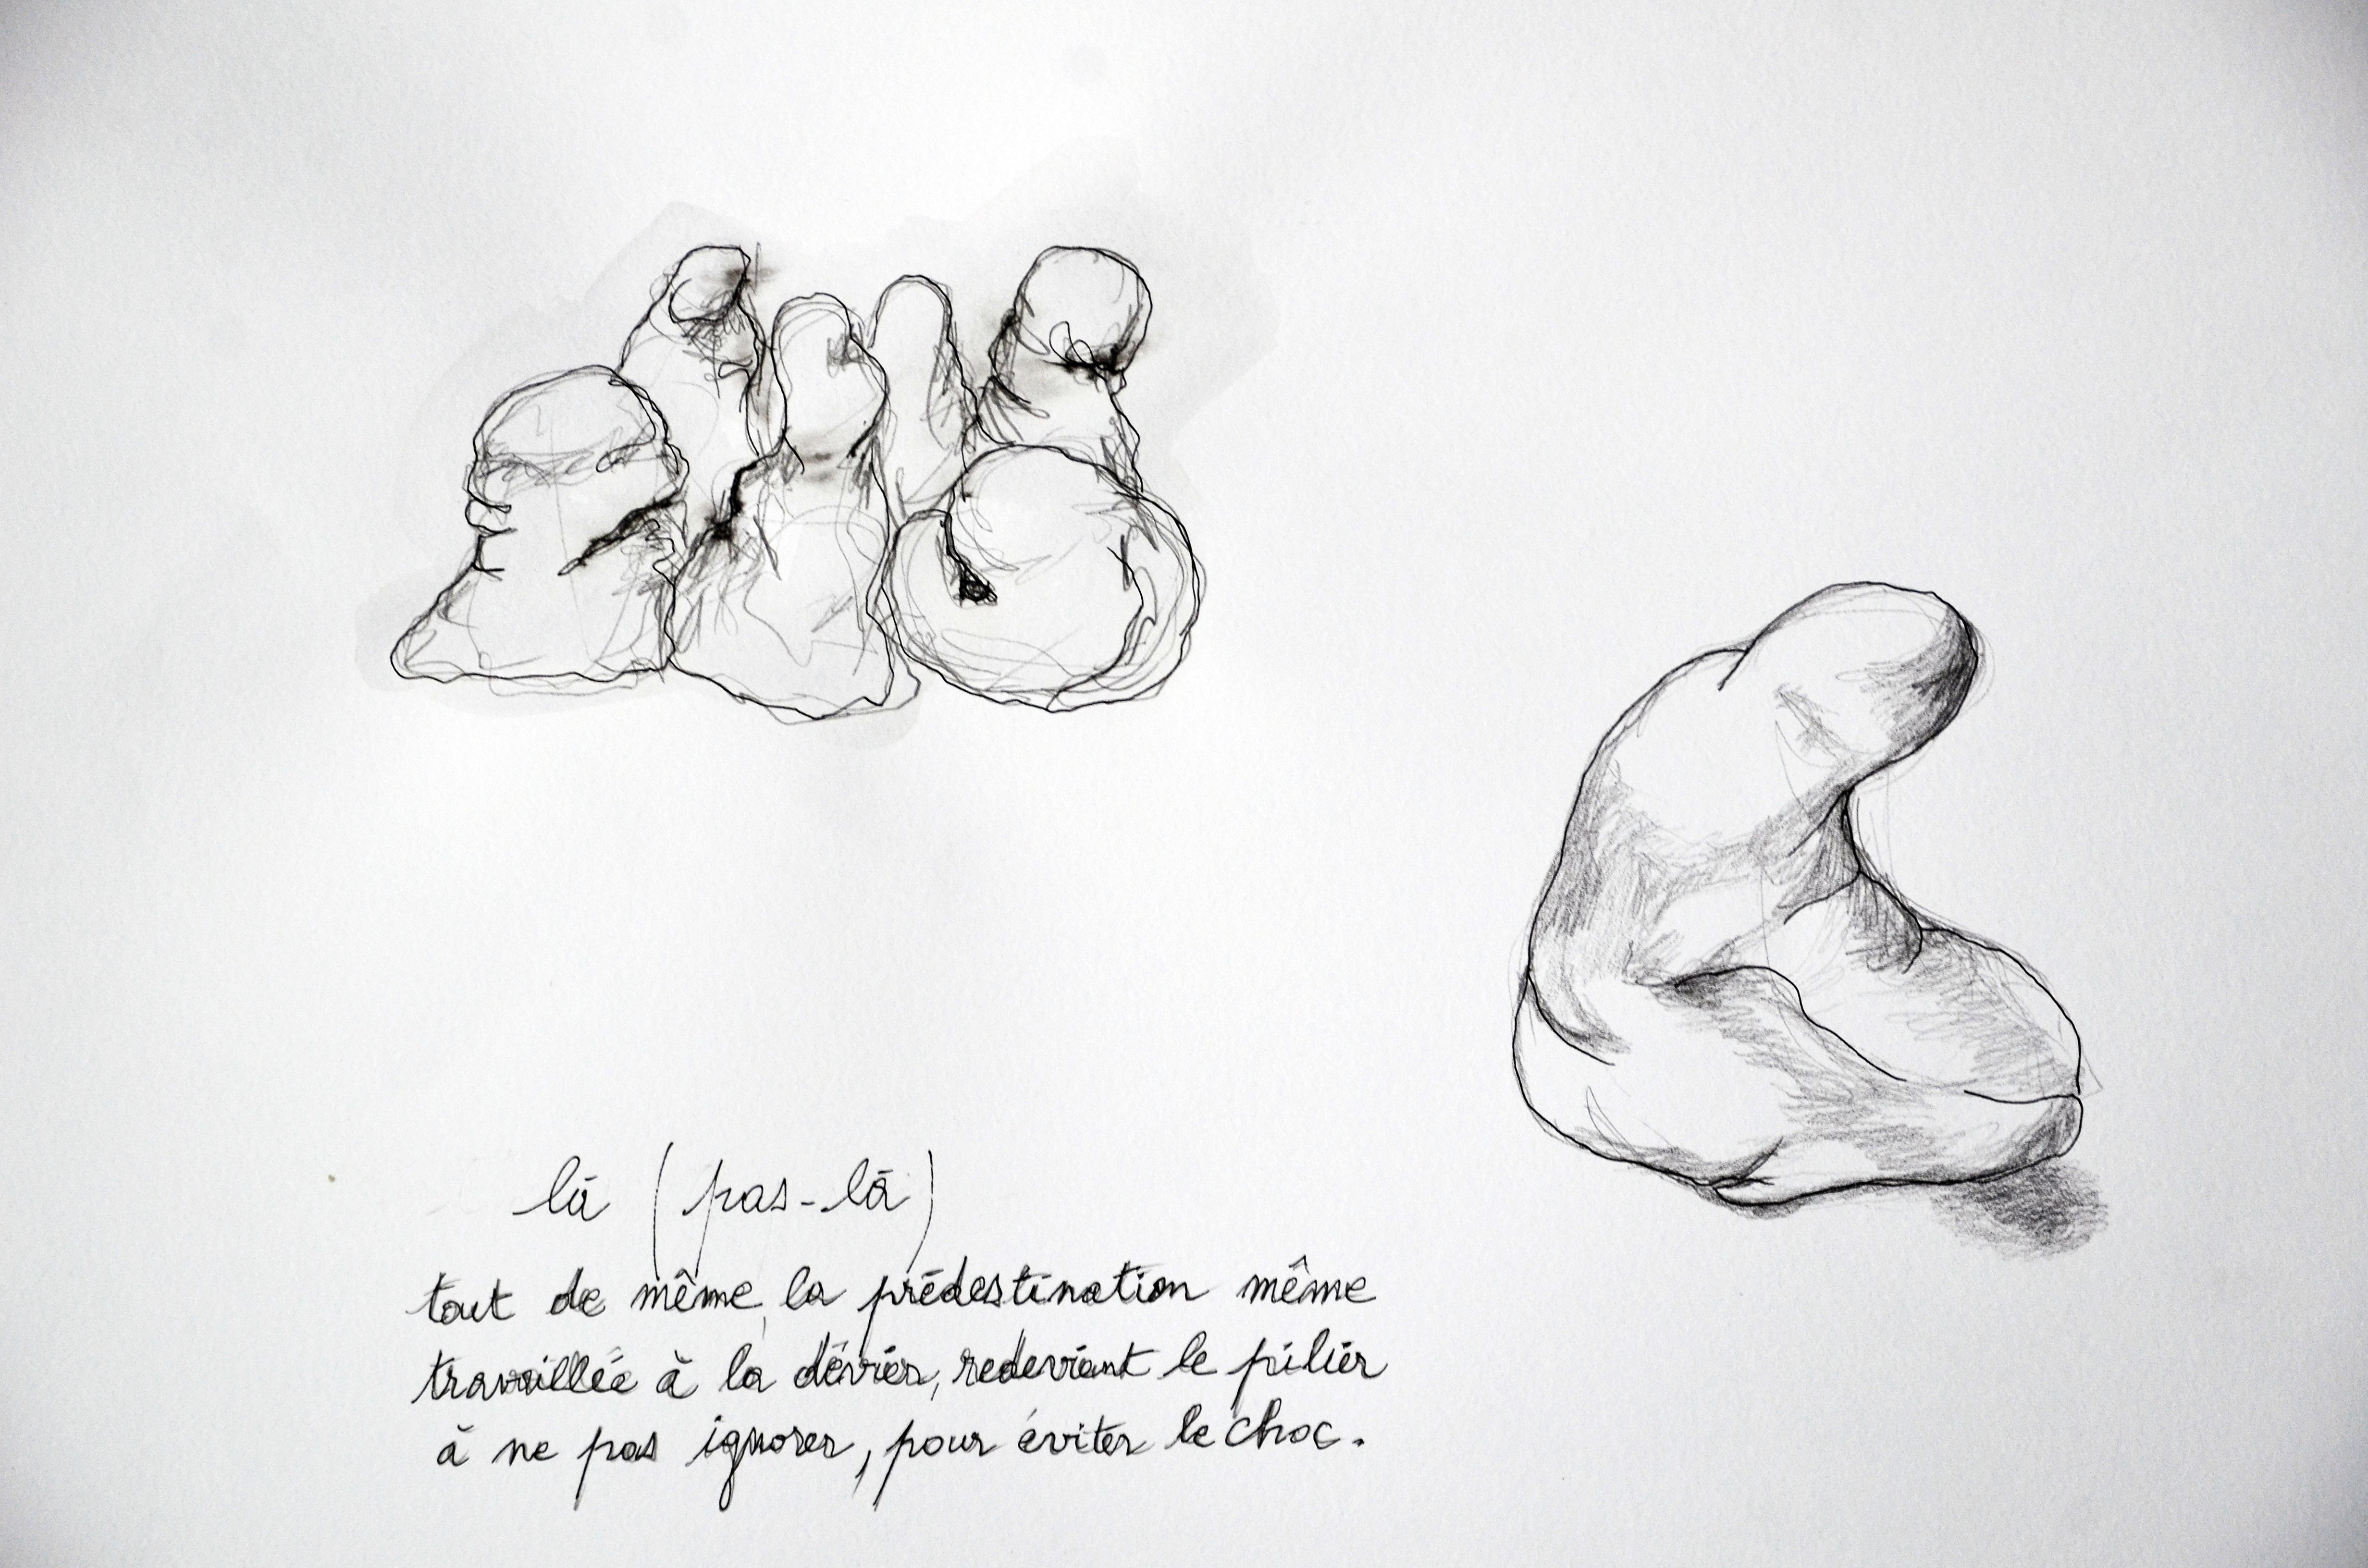 là (pas-là)
tout de même, la prédestination même
travaillée à la dévier, redevient le pilier
à ne pas ignorer, pour éviter le choc.